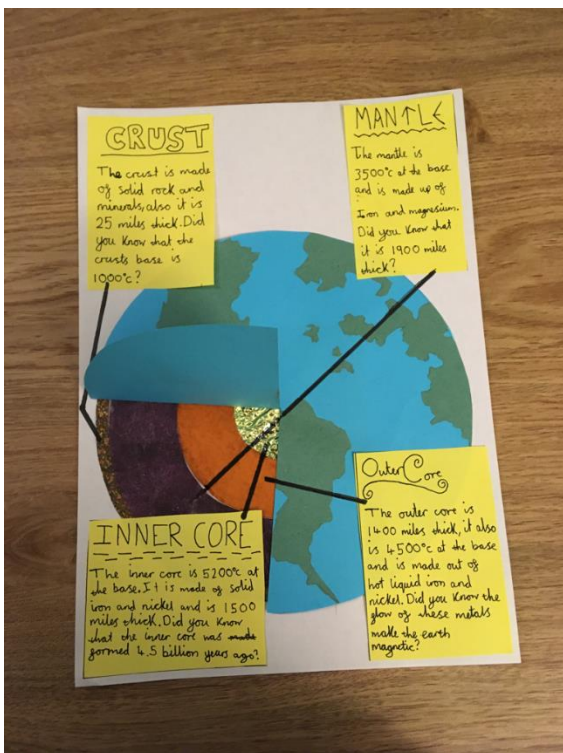 CRUST
The crust is made
of solid rock and
minerals, also it is
25 miles thick. Did
you know that the
crusts base is
1000°c?
MANTLE
The mantle is
3500°c at the base
and is made up of
Iron and magnesium.
Did you know that
it is 1900 miles
thick?
INNER CORE
The inner core is 5200°c at
the base. It is made of solid
iron and nickel and is 1500
miles thick. Did you know
that the inner core was made
formed 4.5 billion years ago?
Outer Core
The outer core is
1400 miles thick, it also
is 4500°c at the base
and is made out of
hot liquid iron and
nickel. Did you know the
flow of these metals
make the earth
magnetic?